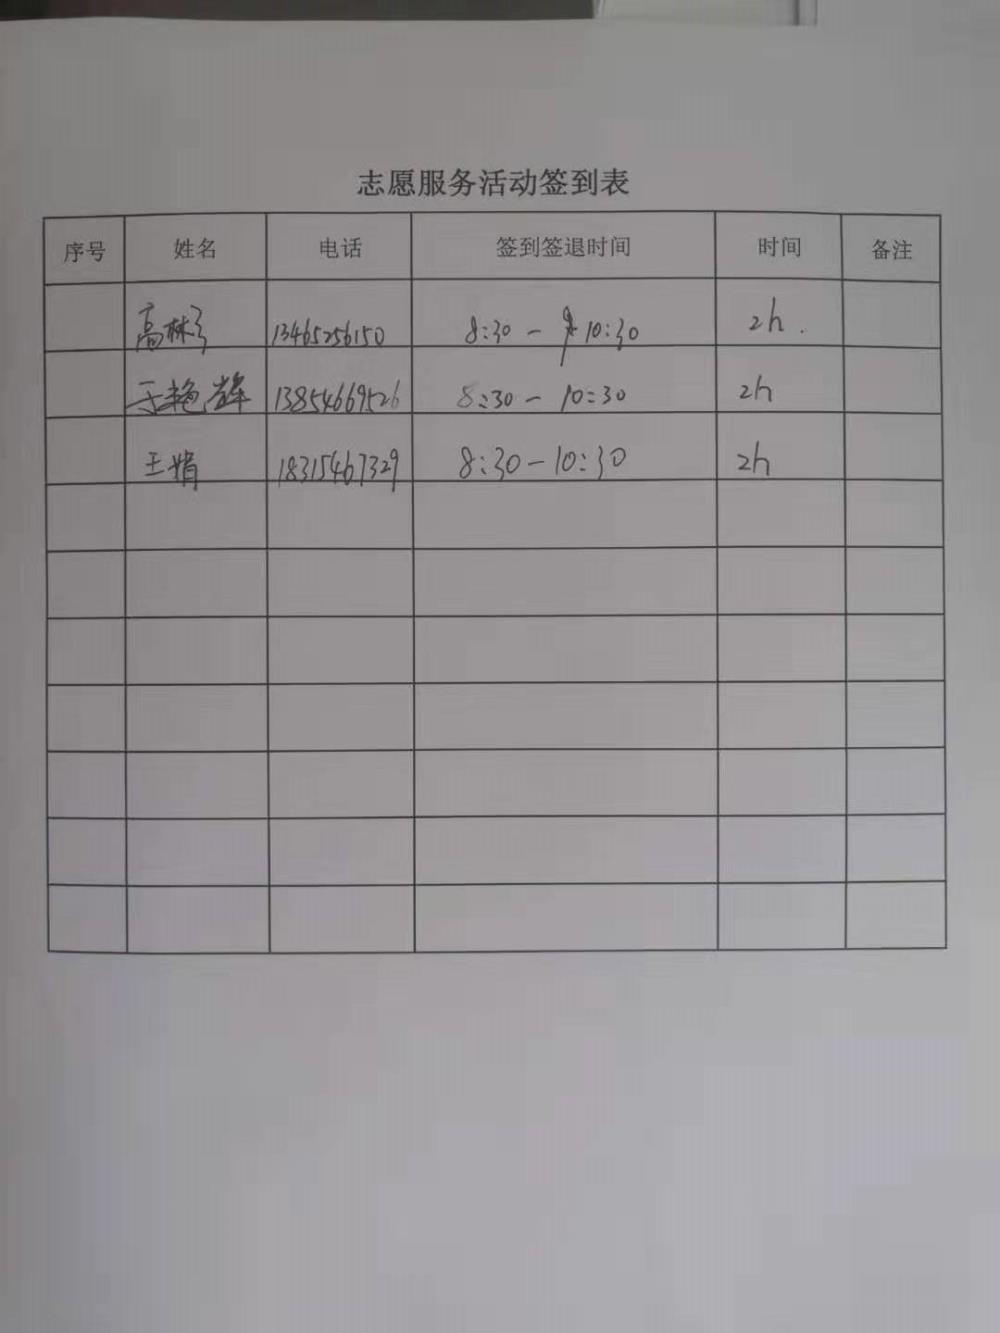 志愿服务活动签到表
序号 姓名 电话 签到签退时间 时间 备注
高林 13465256150 8:30 - 10:30 2h.
于艳辉 13854669526 8:30 - 10:30 2h
王娟 18315467329 8:30 - 10:30 2h